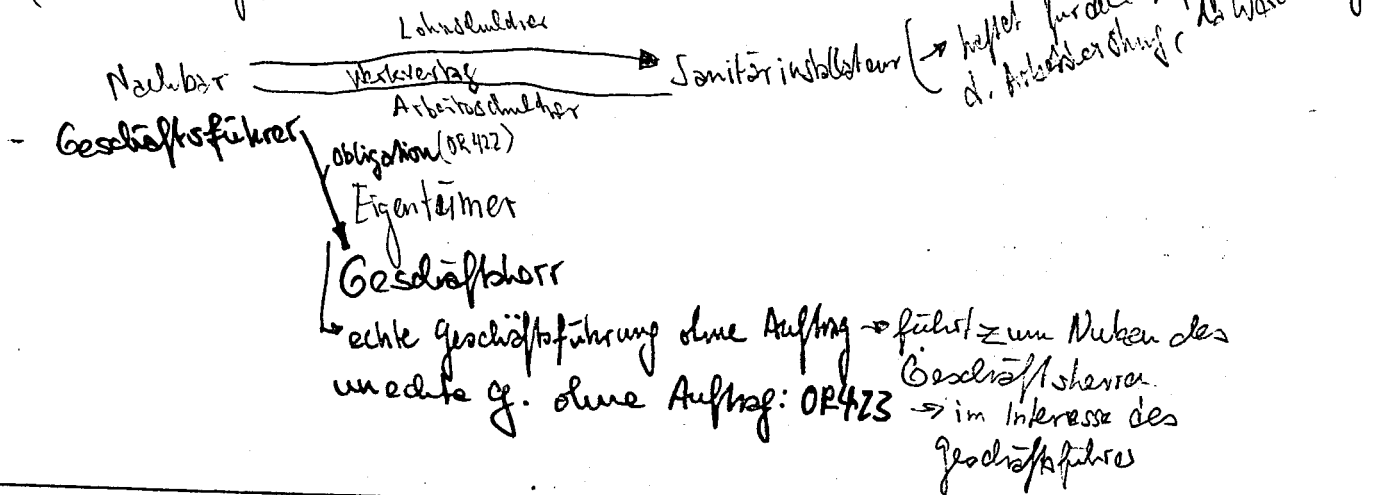 Lohnschuldner
Nachbar Werkvertrag Sanitärinstallateur haftet für
Arbeitsschuldner d.
- Geschäftsführer
Obligation (OR 422)
Eigentümer
Geschäftsherr
echte Geschäftsführung ohne Auftrag → führt zum Nutzen des
Geschäftsherren
unechte G. ohne Auftrag: OR 423 → im Interesse des
Geschäftsführer